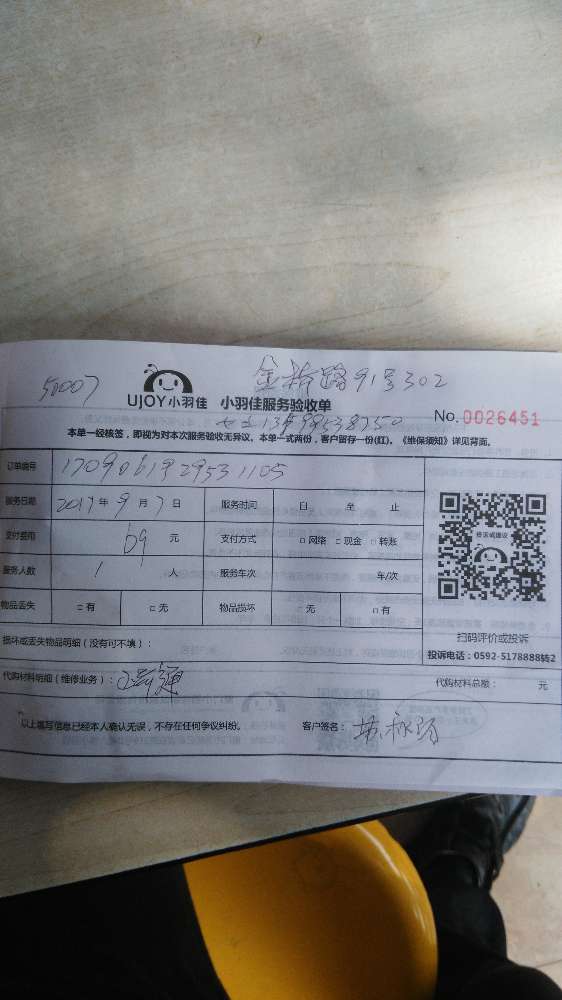 50007
金桥路91号302
UJOY小羽佳 小羽佳服务验收单
No. 0026451
本单一经核签，即视为对本次服务验收无异议。本单一式两份，客户留存一份(红)。《维保须知》详见背面。
订单编号
服务日期 2017年9月7日 服务时间 自 至 止
支付费用 69 元 支付方式 □网络 □现金 □转账
服务人数 1 人 服务车次 车/次
物品丢失 □有 □无 物品损坏 □无 □有
扫码评价或投诉
投诉电话：0592-5178888转2
损坏或丢失物品明细（没有可不填）：
代购材料明细（维修业务）： 代购材料总额： 元
以上填写信息已经本人确认无误，不存在任何争议纠纷。 客户签名：